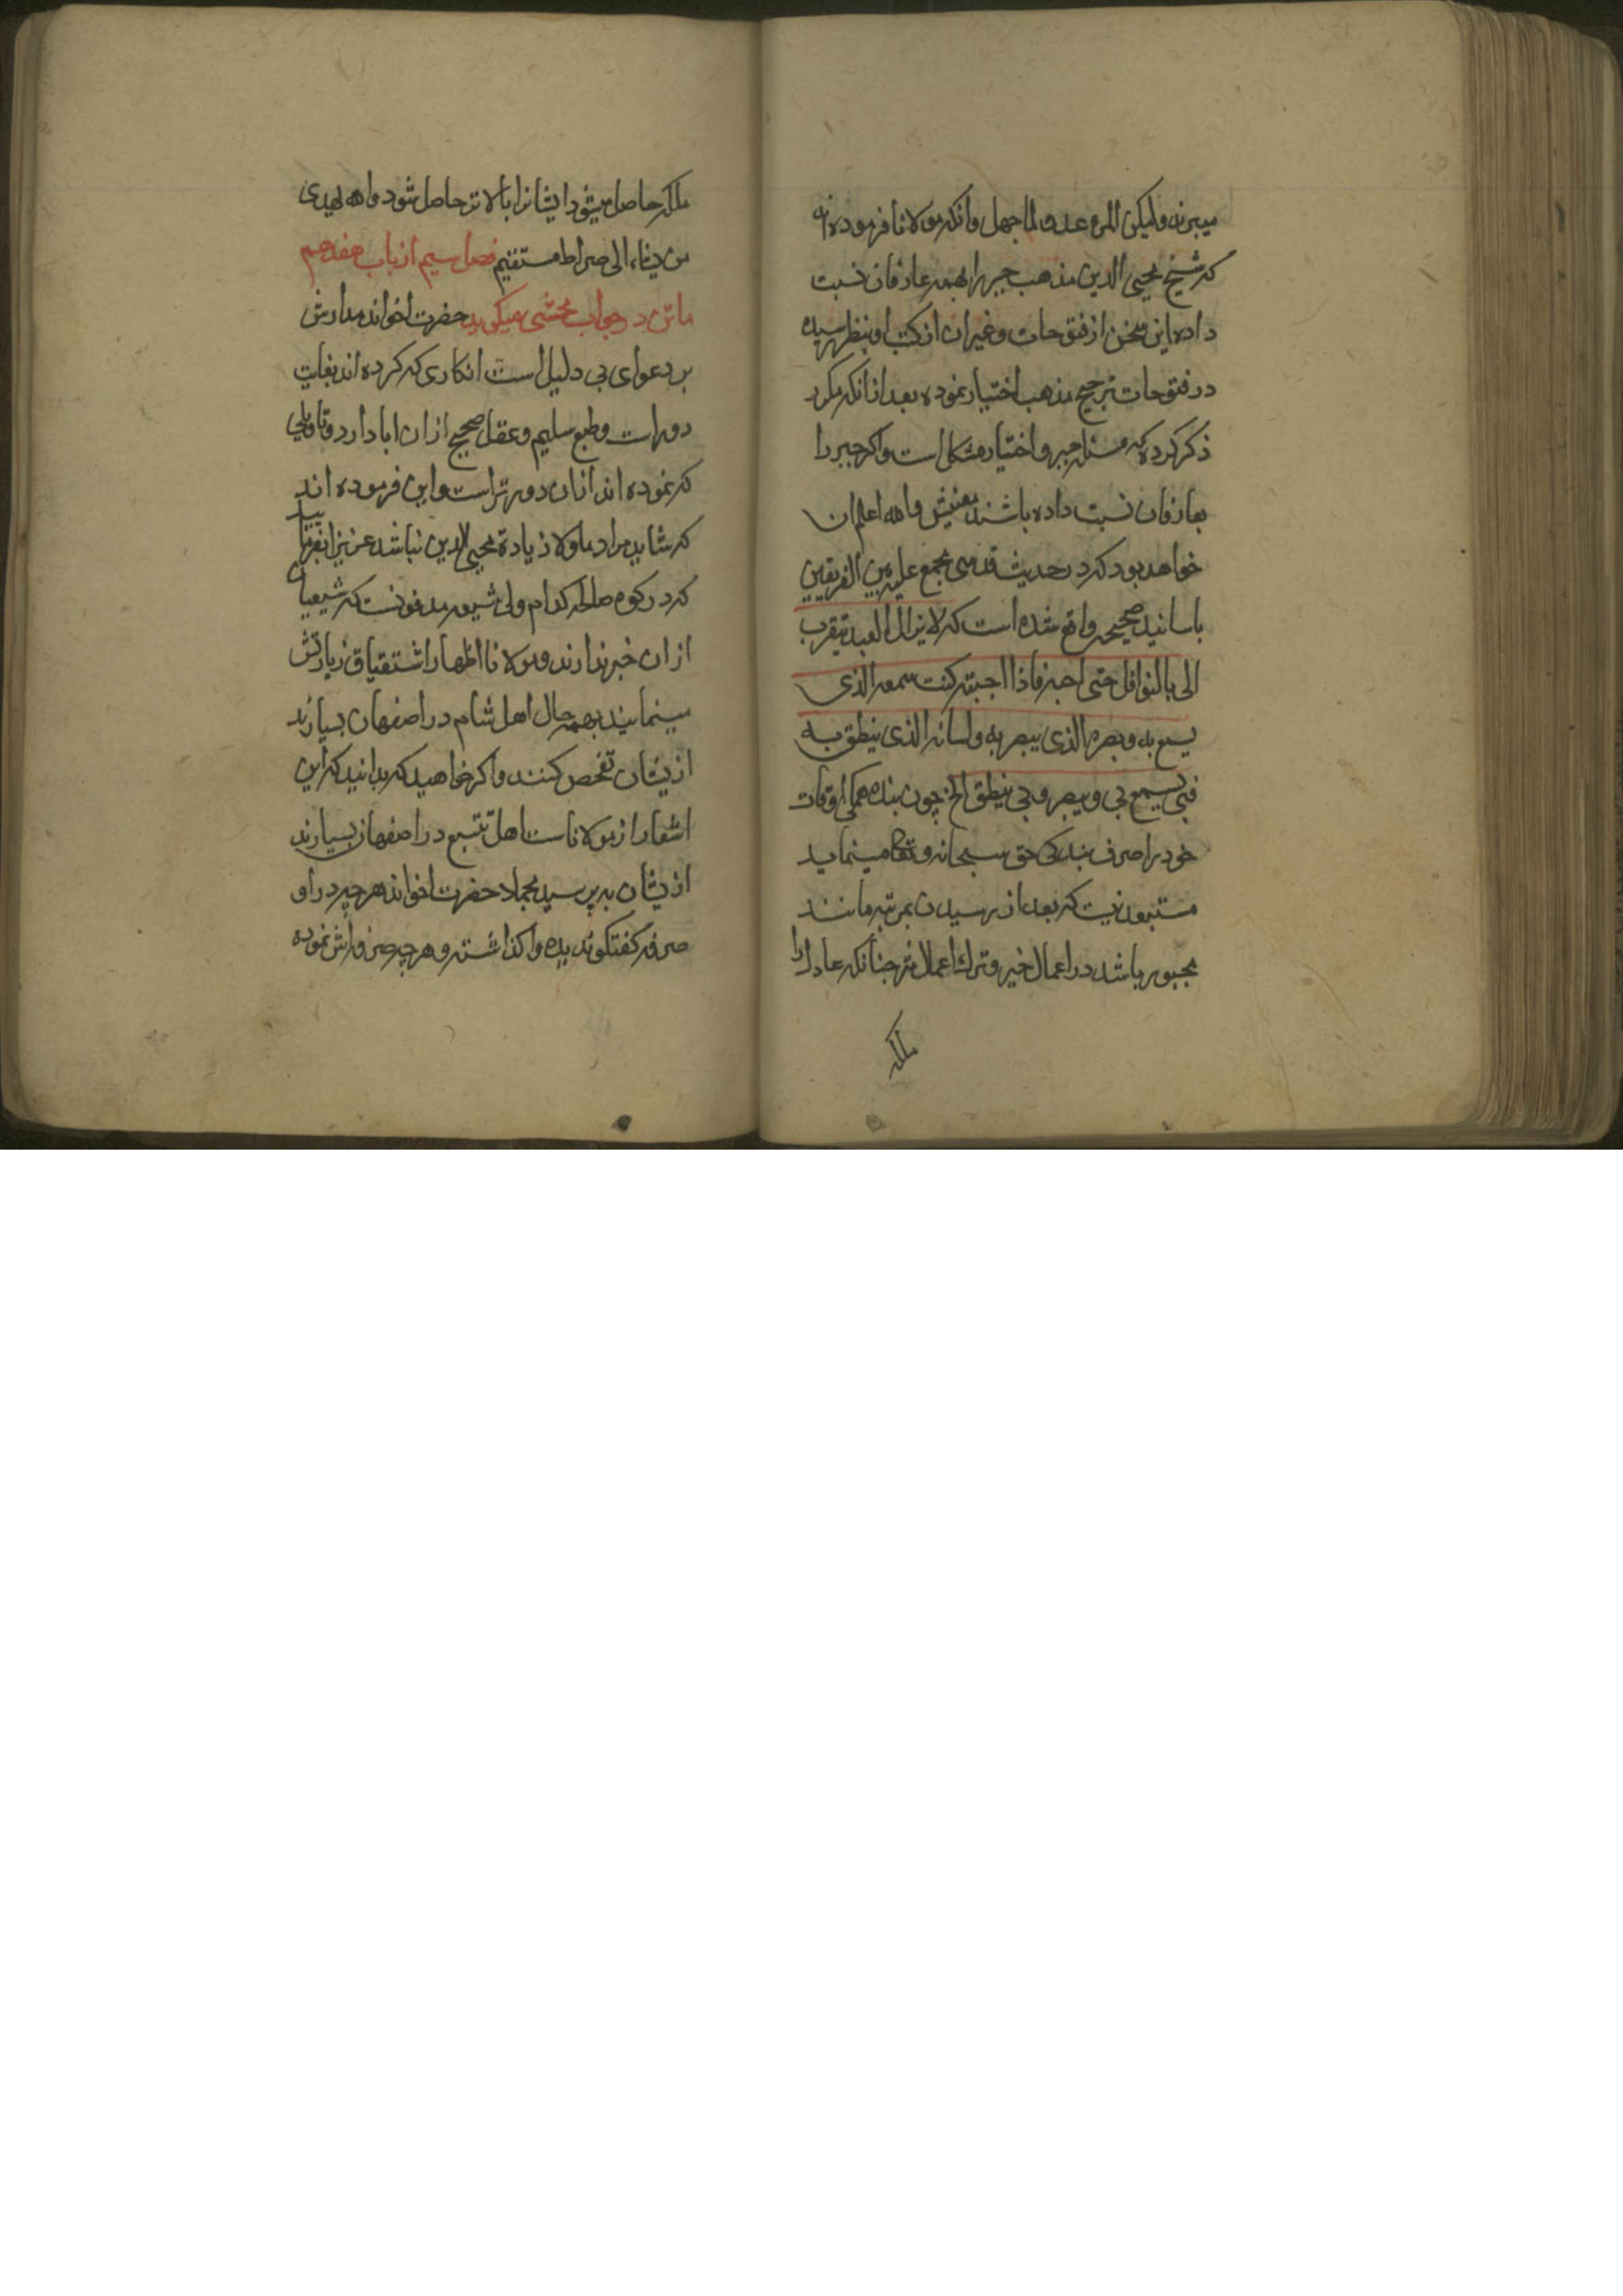 میبرند ولیکن المرء عدو لما جهل وانکه مولانا فرموده اند
که شیخ محیی الدین مذهب جبر را بهمه عارفان نسبت
داده این سخن از فتوحات وغیر ان از کتب او بنظر نرسیده
در فتوحات ترجیح مذهب اختیار نموده بعد از انکه مکرر
ذکر کرده که مسئله جبر و اختیار مشکل است واکر جبر را
بعارفان نسبت داده باشند معنیش والله اعلم ان
خواهد بود که در حدیث قدسی مجمع علیه بین الفریقین
باسانید صحیحه واقع شده است که لا یزال العبد یتقرب
الی بالنوافل حتی احبه فاذا احببته کنت سمعه الذی
یسمع به وبصره الذی یبصر به ولسانه الذی ینطق به
فبی یسمع وبی یبصر وبی ینطق الخ چون بنده همکی اوقات
خود را صرف بندکی حق سبحانه وتعالی مینماید
مستبعد نیست که بعد از رسیدن بمرتبه مانند
مجبور باشد در اعمال خیر وترک اعمال شر چنانکه عادل را
ملکه
ملکه حاصل میشود ایشانرا بالاتر حاصل شود والله یهدی
من یشاء الی صراط مستقیم فصل سیم از باب هفدهم
ماتن در جواب محشی میکوید حضرت اخوند مدارش
بر دعوای بی دلیل است انکاری که کرده اند بغایت
دور است وطبع سلیم وعقل صحیح از ان ابا دارد وتاویلی
که نموده اند از ان دورتر است واین فرموده اند
که شاید مراد ملا زیادة محیی الدین نباشد عزیز من بفرمایید
که در کوه صالحه کدام ولی شیعه مدفونست که شیعیان
از ان خبر ندارند ومولانا اظهار اشتقیاق زیارتش
مینمایند بهمه حال اهل شام در اصفهان بسیارند
از یشان تفحص کنند واکر خواهید که بدانید که این
اشعار از مولاناست اهل تتبع در اصفهان بسیارند
از یشان بپرسید مجملا حضرت اخوند هرچیز در او
صرفه کفتکو ندیده واکذاشته وهرچه صرفه اش نموده